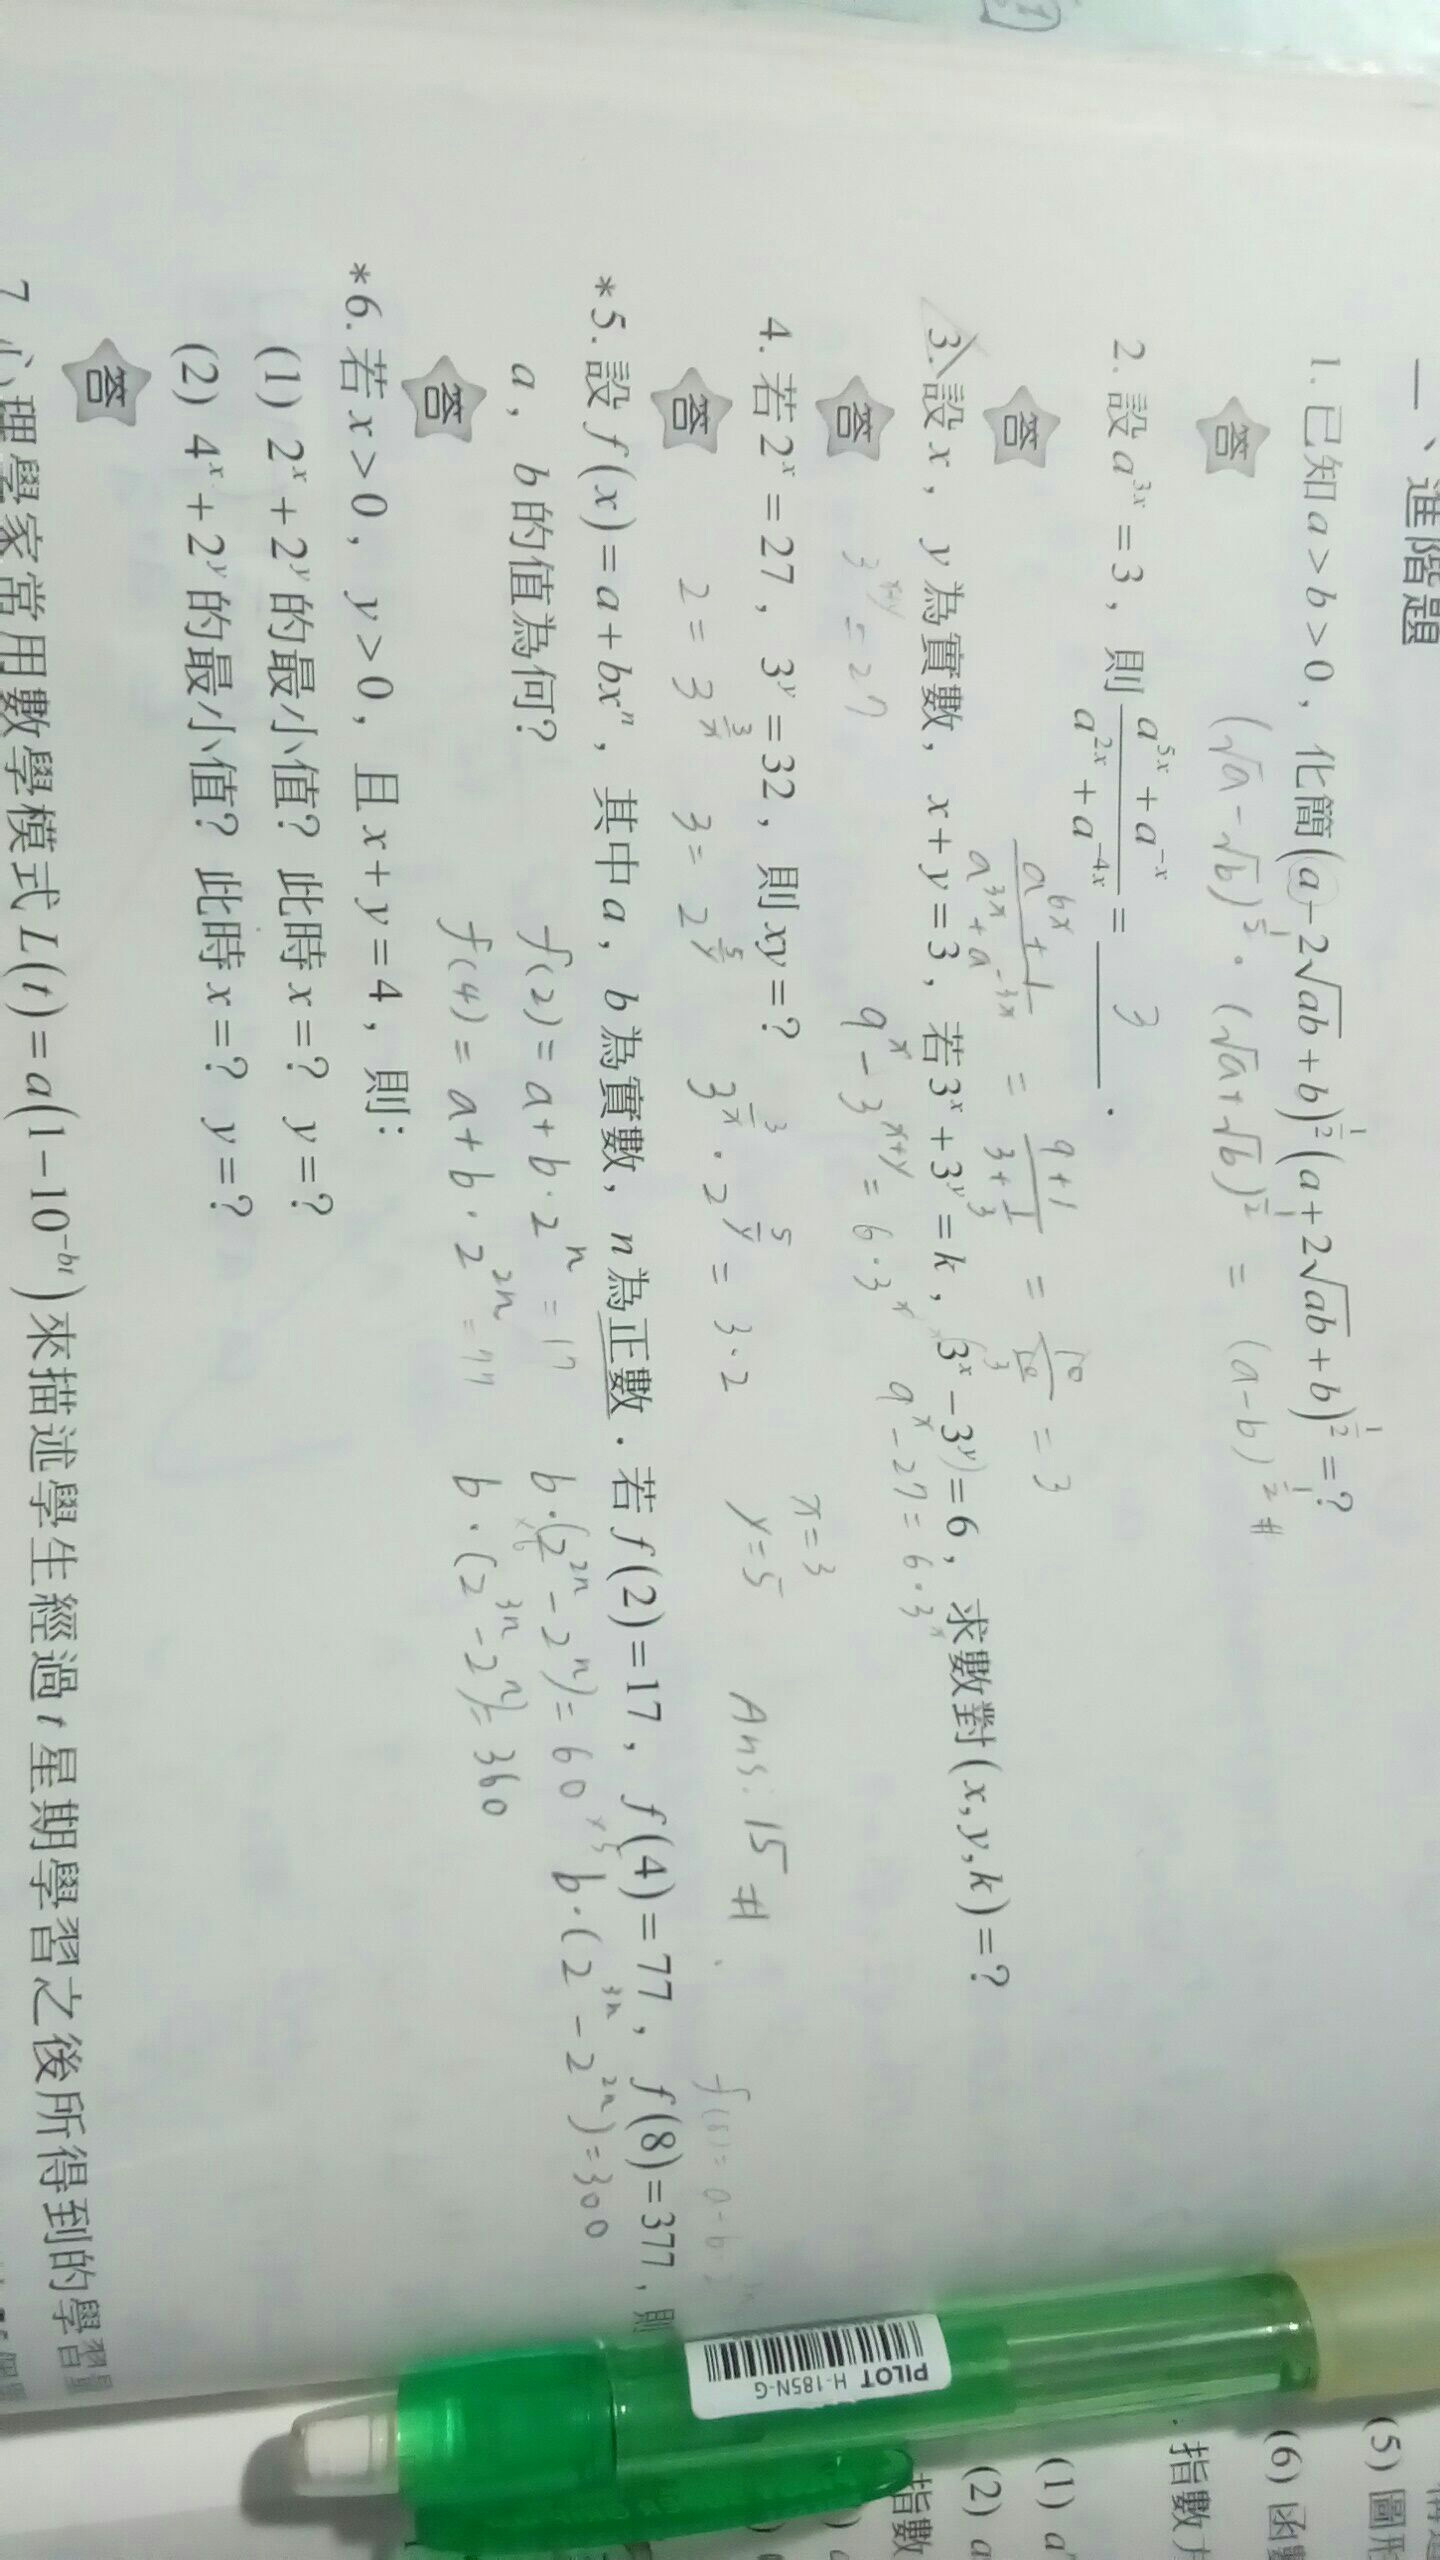 一、進階題
1. 已知 a > b > 0，化簡 (a − 2√ab + b)^½ (a + 2√ab + b)^½ = ？
答 (√a − √b)^½ · (√a + √b)^½ = (a − b)^½ #
2. 設 a^3x = 3，則 (a^5x + a^−x)/(a^2x + a^−4x) = 3 .
答 (a^6x + 1)/(a^3x + a^−3x) = (9+1)/(3+1/3) = 10/(10/3) = 3
3. 設 x，y 為實數，x + y = 3，若 3^x + 3^y = k，3^x − 3^y = 6，求數對 (x, y, k) = ？
答 3^x+y = 27 9^x − 3^x+y = 6·3^x 9^x − 27 = 6·3^x
4. 若 2^x = 27，3^y = 32，則 xy = ？
答 2 = 3^3/x 3 = 2^5/y 3^3/x · 2^5/y = 3·2 x=3 y=5 Ans: 15 #
*5. 設 f(x) = a + bx^n，其中 a，b 為實數，n 為正數．若 f(2) = 17，f(4) = 77，f(8) = 377，則
a，b 的值為何？ f(2) = a + b·2^n = 17 b·(2^2n − 2^n) = 60 b·(2^3n − 2^2n) = 300
答 f(4) = a + b·2^2n = 77 b·(2^3n − 2^n) = 360
*6. 若 x > 0，y > 0，且 x + y = 4，則：
(1) 2^x + 2^y 的最小值？此時 x = ？ y = ？
(2) 4^x + 2^y 的最小值？此時 x = ？ y = ？
答
7. 心理學家常用數學模式 L(t) = a(1 − 10^−bt) 來描述學生經過 t 星期學習之後所得到的學習量
PILOT H-185N-G
(5) 圖形
(6) 函數
指數
(1) a
(2) a
指數